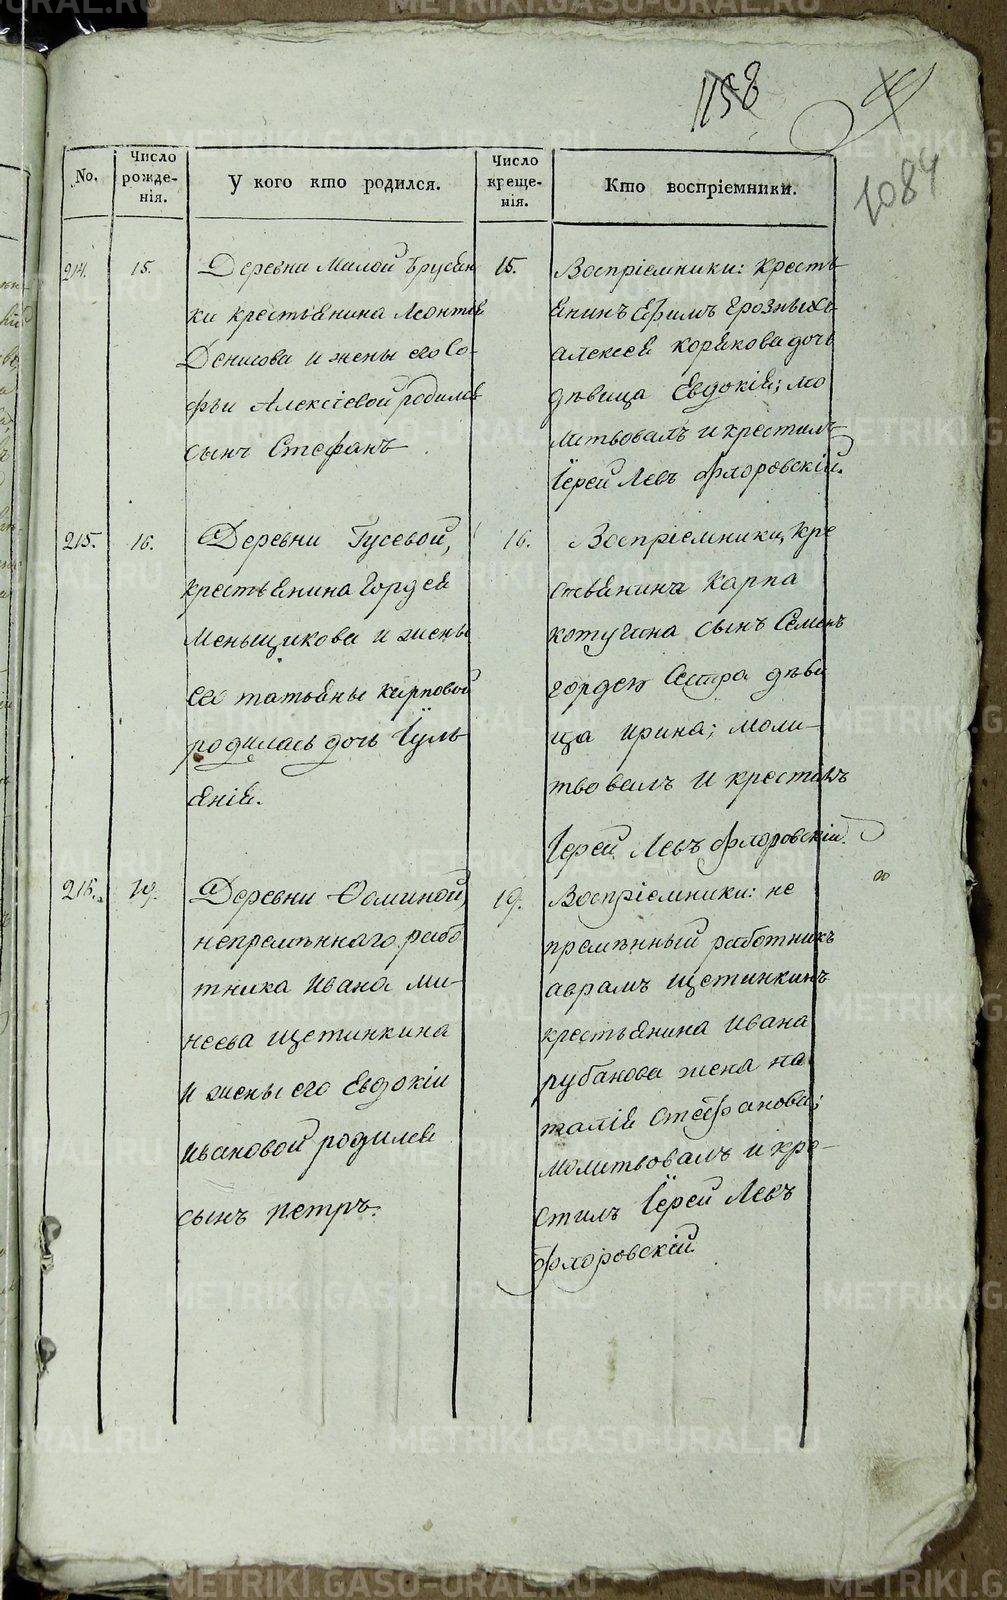 1158
1084
No.
Число рожде-нія.
У кого кто родился.
Число креще-нія.
Кто воспріемники.
214.
15.
Деревни Малой Брусян
ки крестьянина Леонтія
Денисова и жены его Со-
фьи Алексіевой родился
сынъ Стефанъ
15.
Воспріемники: кресть
янинъ Ефимъ Грозныхъ
алексея корякова дочь
дѣвица Евдокія; мо
литвовалъ и крестилъ
Іерей Левъ Флоровскій.
215.
16.
Деревни Гусевой,
крестьянина Гордея
Меньщикова и жены
его татьяны карповой
родилась дочь Іуль
янія.
16.
Воспріемники, кре
стьянина Карпа
котугина сынъ Семенъ
гордея Сестра дѣви
ца ирина; моли-
твовалъ и крестилъ
Іерей Левъ Флоровскій.
216.
19.
Деревни Ѳоминой,
непремѣннаго рабо
тника Ивана ми-
неева щетинкина
и жены его Евдокіи
ивановой родился
сынъ петръ.
19.
Воспріемники: не
премѣнный работникъ
аврамъ щетинкинъ
крестьянина ивана
рубанова жена на
талія стефанова;
молитвовалъ и кре-
стилъ Іерей Левъ
Флоровскій
METRIKI.GASO-URAL.RU